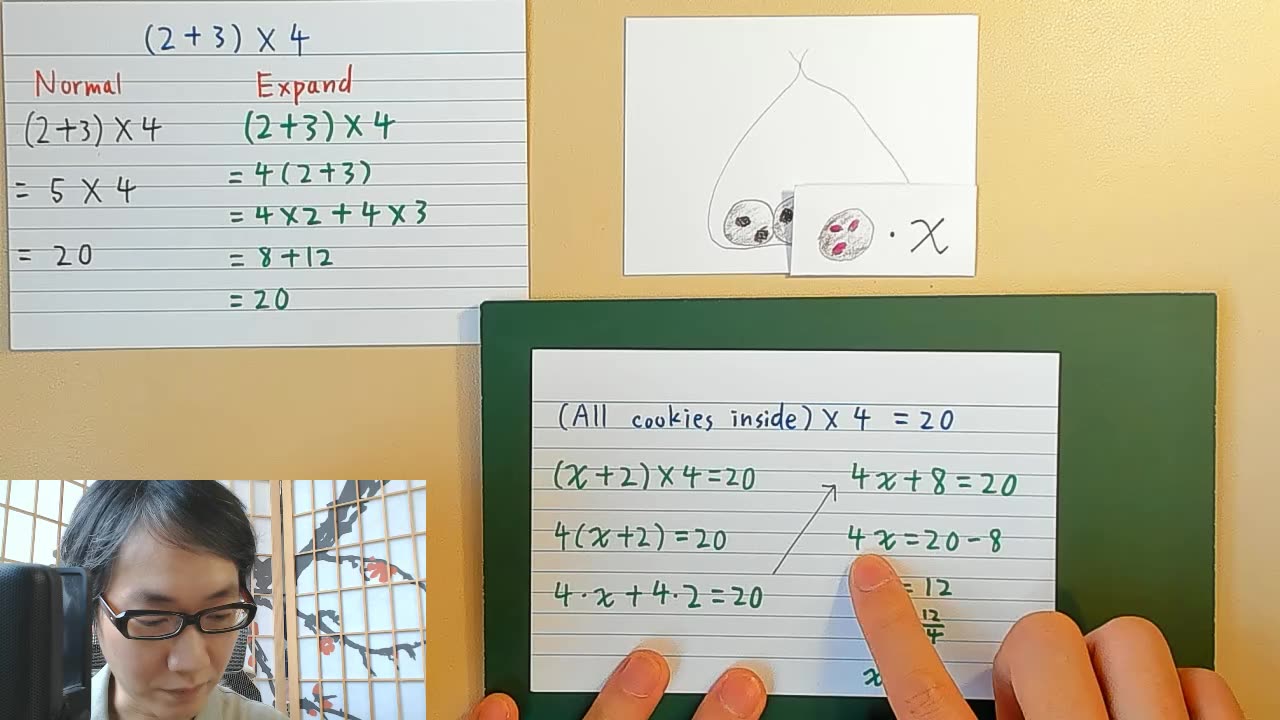 (2+3) × 4
Normal
(2+3) × 4
= 5 × 4
= 20
Expand
(2+3) × 4
= 4(2+3)
= 4×2 + 4×3
= 8+12
= 20
· x
(All cookies inside) × 4 = 20
(x+2) × 4 = 20
4(x+2) = 20
4·x + 4·2 = 20
4x + 8 = 20
4x = 20 - 8
= 12
12/4
x